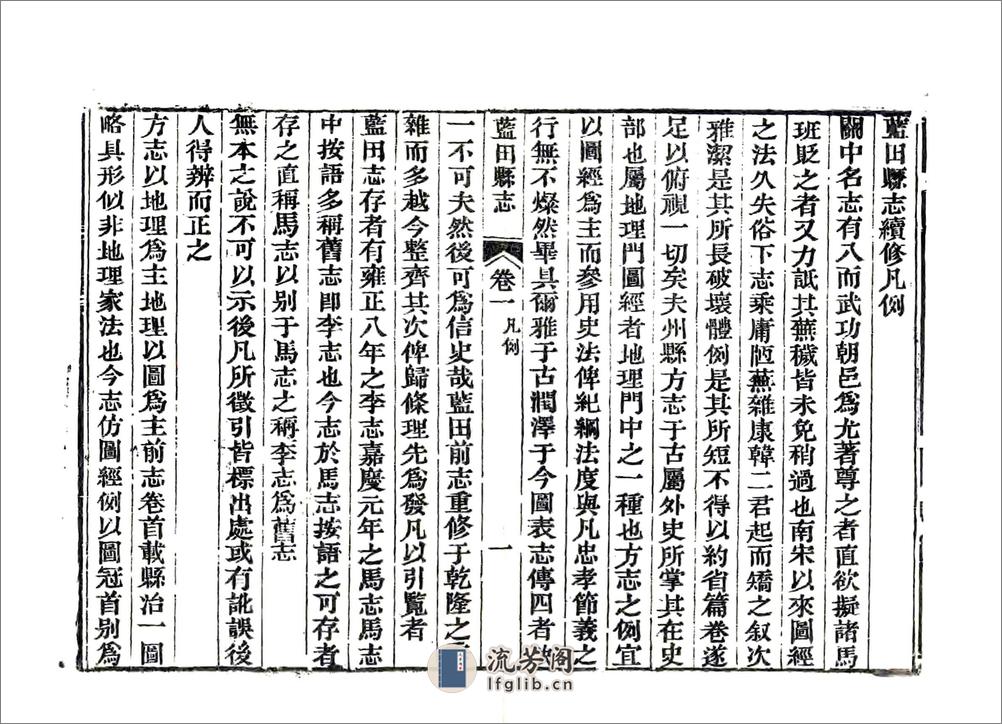 藍田縣志續修凡例
關中名志有八而武功朝邑爲尤著尊之者直欲擬諸馬
班貶之者又力詆其蕪穢皆未免稍過也南宋以來圖經
之法久失俗下志乘庸恆蕪雜康韓二君起而矯之敘次
雅潔是其所長破壞體例是其所短不得以約省篇卷遂
足以俯視一切矣夫州縣方志于古屬外史所掌其在史
部也屬地理門圖經者地理門中之一種也方志之例宜
以圖經爲主而參用史法俾紀綱法度與凡忠孝節義之
行無不燦然畢具爾雅于古潤澤于今圖表志傳四者
藍田縣志
卷一
凡例
一
一不可夫然後可爲信史哉藍田前志重修于乾隆之
雜而多越今整齊其次俾歸條理先爲發凡以引覧者
藍田志存者有雍正八年之李志嘉慶元年之馬志馬志
中按語多稱舊志卽李志也今志於馬志按語之可存者
存之直稱馬志以别于馬志之稱李志爲舊志
無本之說不可以示後凡所徵引皆標出處或有訛誤後
人得辨而正之
方志以地理爲主地理以圖爲主前志卷首載縣治一圖
略具形似非地理家法也今志仿圖經例以圖冠首别爲
流芳阁
lfglib.cn